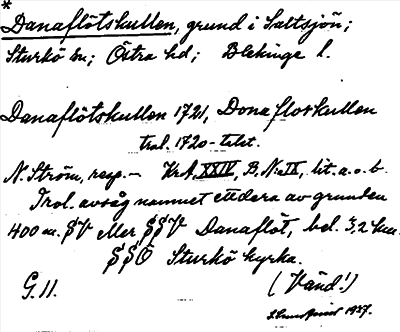 *
Danaflötskullen, grund i Saltsjön;
Sturkö sn; Östra hd; Blekinge l.
Danaflötskullen 1721, Donafloskullen
trol. 1720-talet.
N. Ström, resp. – KrA, XXIV, B, N:o IX, lit. a. o. b.
Trol. avsåg namnet ettdera av grunden
400 m. SV eller SSV Danaflöt, bel. 3,2 km.
SSÖ Sturkö kyrka.
G. 11. (Vänd!)
1927.